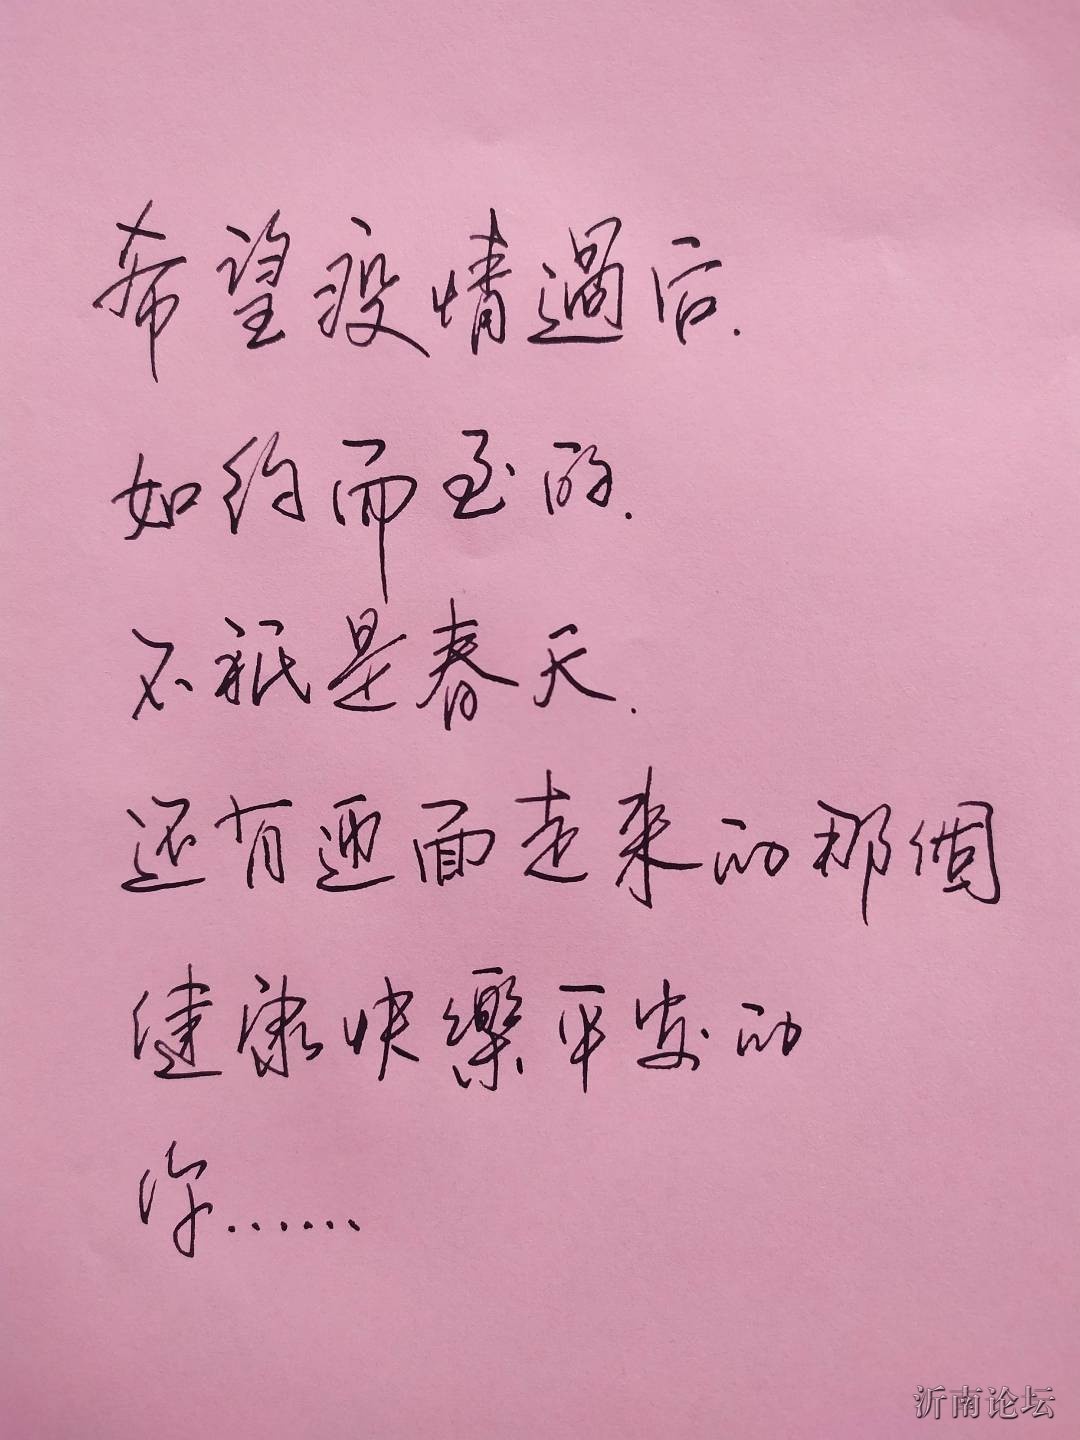 希望疫情過后.
如约而至的.
不祇是春天.
还有迎面走来的那個
健康快樂平安的
你……
沂南论坛